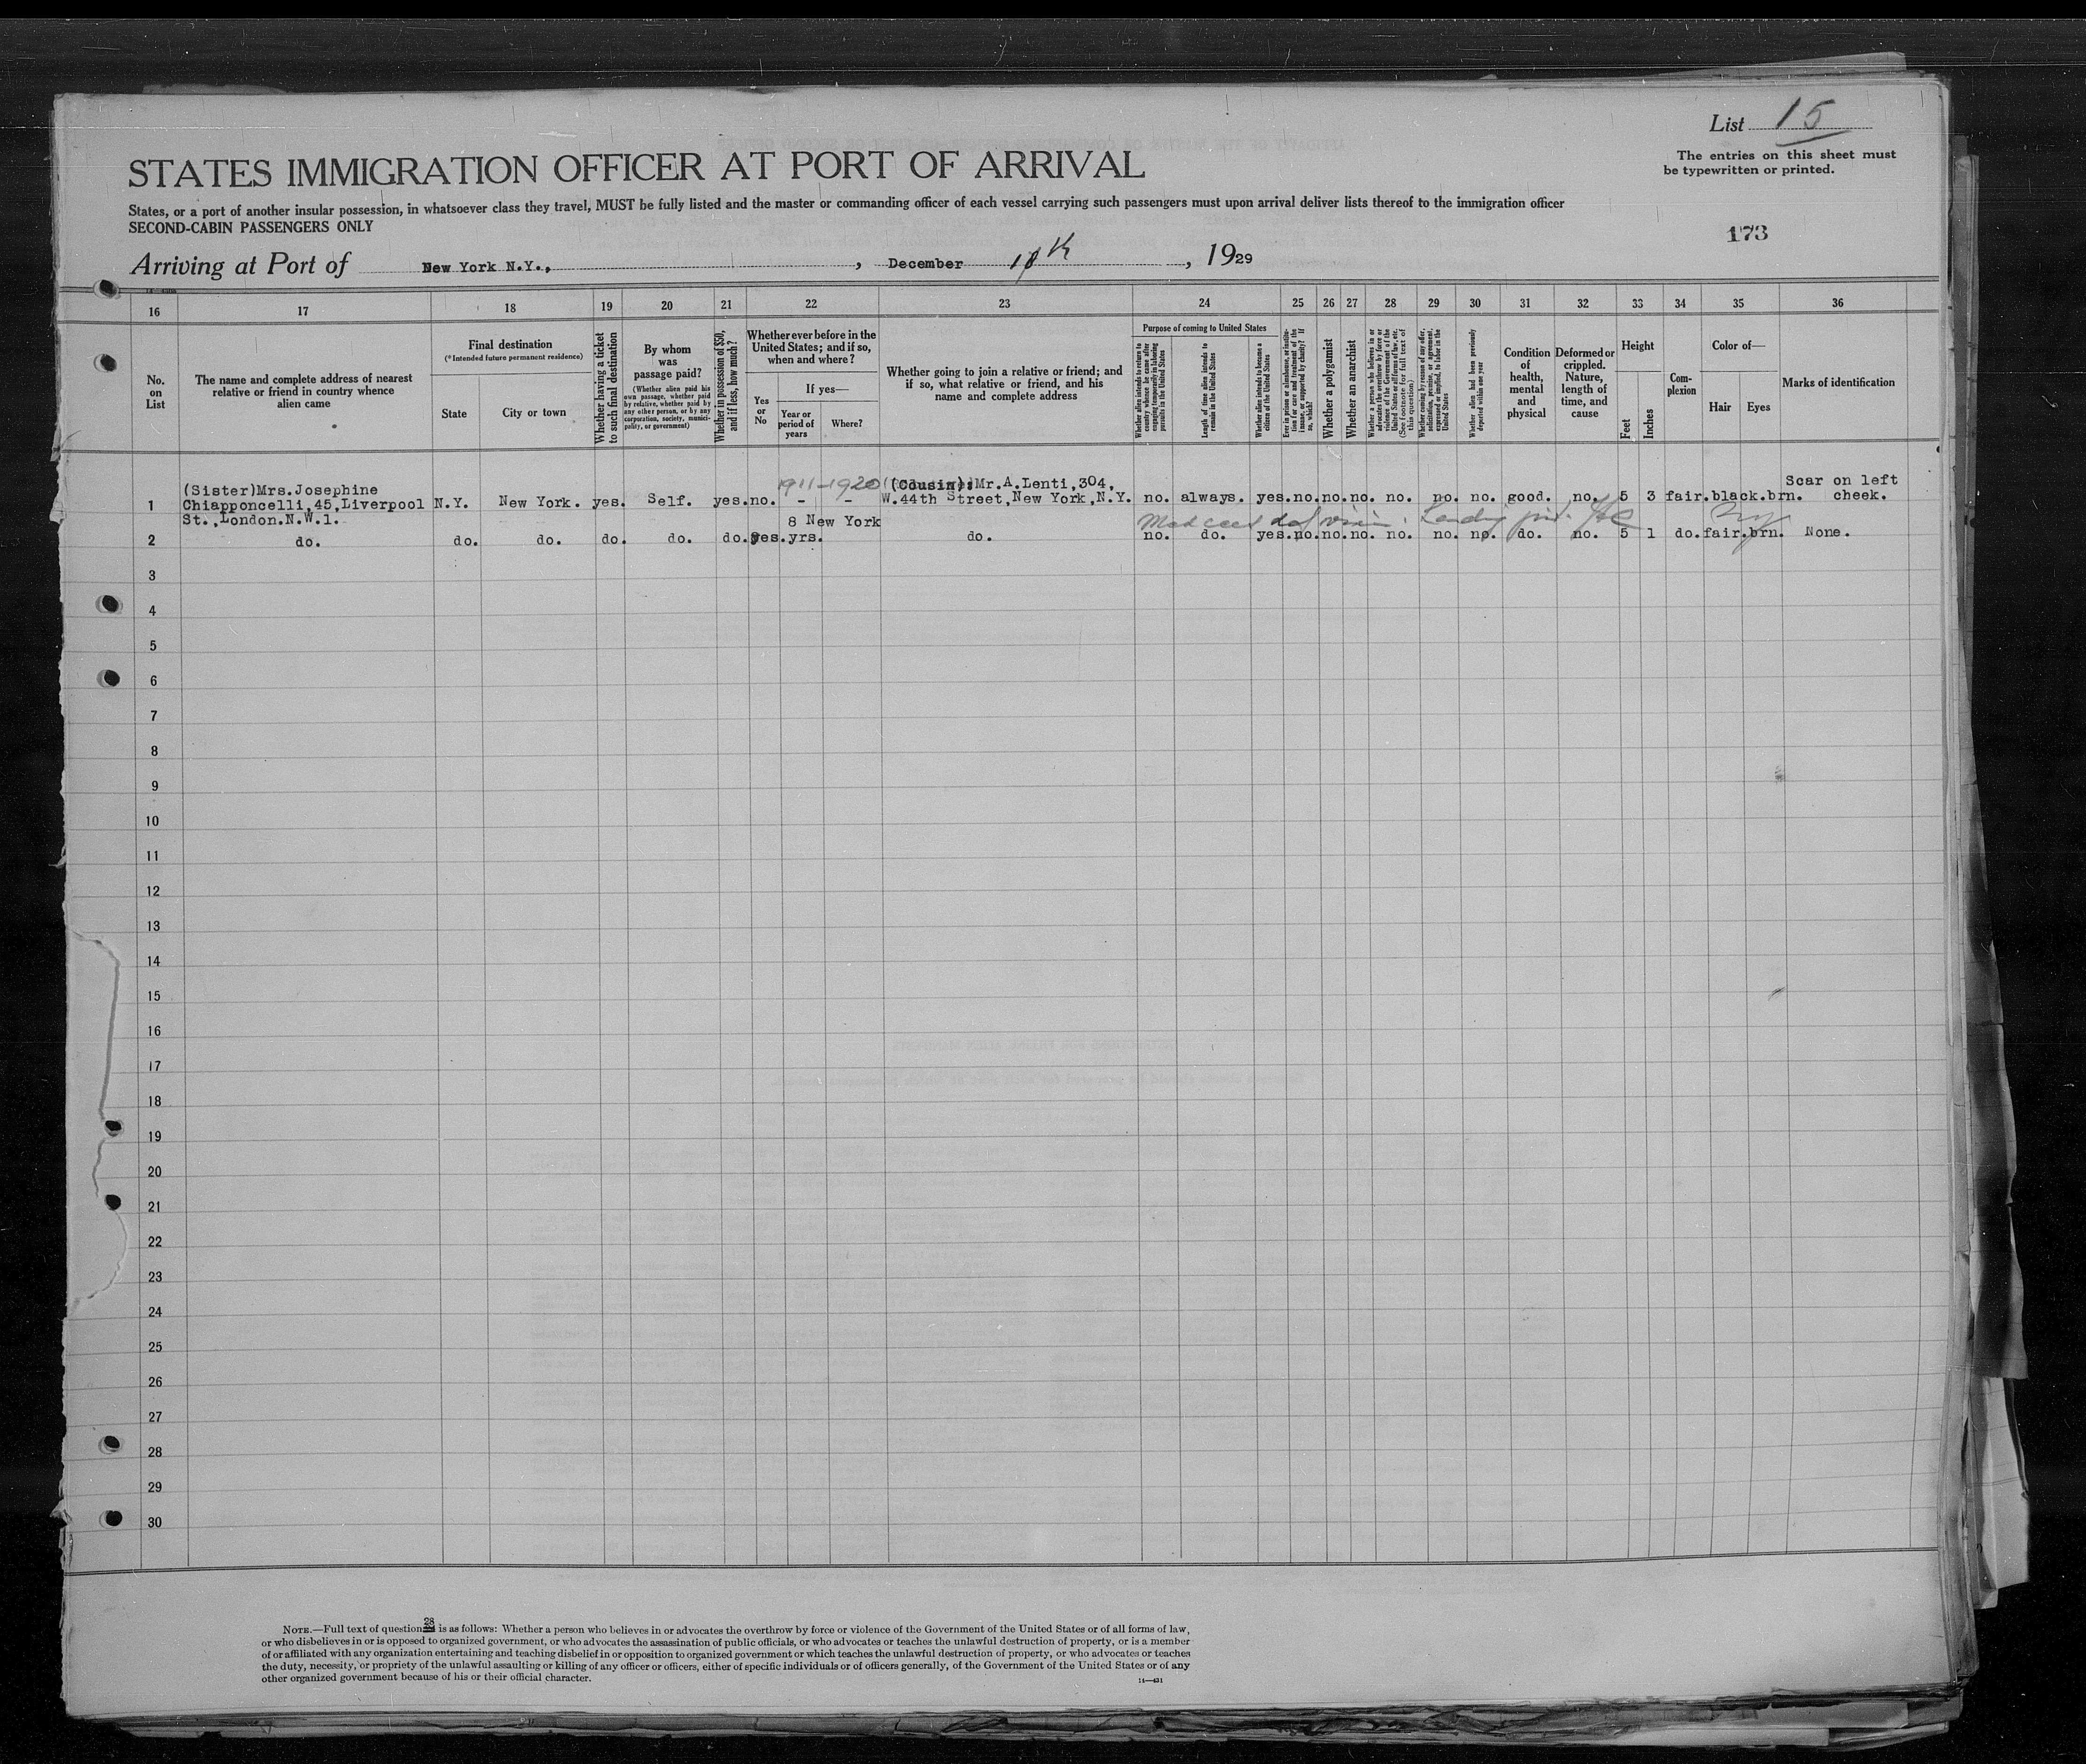 List 15
The entries on this sheet must
be typewritten or printed.
STATES IMMIGRATION OFFICER AT PORT OF ARRIVAL
States, or a port of another insular possession, in whatsoever class they travel, MUST be fully listed and the master or commanding officer of each vessel carrying such passengers must upon arrival deliver lists thereof to the immigration officer
SECOND-CABIN PASSENGERS ONLY
173
Arriving at Port of New York N.Y., , December 18th , 1929
16 17 18 19 20 21 22 23 24 25 26 27 28 29 30 31 32 33 34 35 36
No. on List
The name and complete address of nearest relative or friend in country whence alien came
Final destination
(*Intended future permanent residence)
State
City or town
Whether having a ticket to such final destination
By whom was passage paid?
(Whether alien paid his own passage, whether paid by relative, whether paid by any other person, or by any corporation, society, municipality, or government)
Whether in possession of $50, and if less, how much?
Whether ever before in the United States; and if so, when and where?
Yes or No
If yes—
Year or period of years
Where?
Whether going to join a relative or friend; and if so, what relative or friend, and his name and complete address
Purpose of coming to United States
Whether alien intends to return to country whence he came after engaging temporarily in laboring pursuits in the United States
Length of time alien intends to remain in the United States
Whether alien intends to become a citizen of the United States
Ever in prison or almshouse, or institution for care and treatment of the insane, or supported by charity? If so, which?
Whether a polygamist
Whether an anarchist
Whether a person who believes in or advocates the overthrow by force or violence of the Government of the United States or all forms of law, etc. (See footnote for full text of this question)
Whether coming by reason of any offer, solicitation, promise, or agreement, expressed or implied, to labor in the United States
Whether alien had been previously deported within one year
Condition of health, mental and physical
Deformed or crippled. Nature, length of time, and cause
Height
Feet
Inches
Complexion
Color of—
Hair
Eyes
Marks of identification
1 (Sister)Mrs.Josephine Chiapponcelli,45,Liverpool St.,London.N.W.1. N.Y. New York. yes. Self. yes. no. 1911-1920 - - (Cousin):Mr.A.Lenti,304, W.44th Street,New York,N.Y. no. always. yes. no. no. no. no. no. no. good. no. 5 3 fair. black. brn. Scar on left cheek.
Med cert def vision. Landing
2 do. do. do. do. do. do. yes. 8 yrs. New York do. no. do. yes. no. no. no. no. no. no. do. no. 5 1 do. fair. brn. None.
3
4
5
6
7
8
9
10
11
12
13
14
15
16
17
18
19
20
21
22
23
24
25
26
27
28
29
30
NOTE.—Full text of question 28 is as follows: Whether a person who believes in or advocates the overthrow by force or violence of the Government of the United States or of all forms of law,
or who disbelieves in or is opposed to organized government, or who advocates the assassination of public officials, or who advocates or teaches the unlawful destruction of property, or is a member
of or affiliated with any organization entertaining and teaching disbelief in or opposition to organized government or which teaches the unlawful destruction of property, or who advocates or teaches
the duty, necessity, or propriety of the unlawful assaulting or killing of any officer or officers, either of specific individuals or of officers generally, of the Government of the United States or of any
other organized government because of his or their official character.
14—431